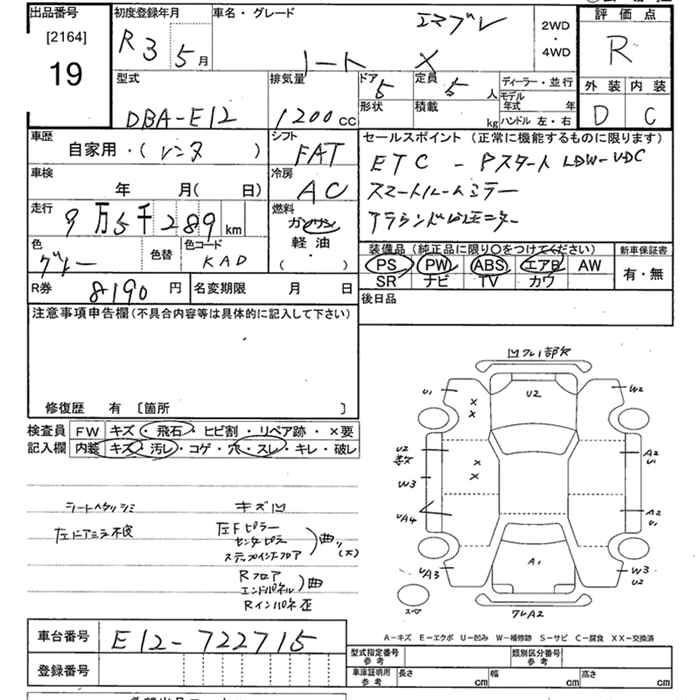 出品番号
[2164]
19
初度登録年月
R3年5月
車名・グレード
ノート X
2WD
・
4WD
評価点
R
外装 内装
D C
型式
DBA-E12
排気量
1200cc
ドア 5
形状
定員 5人
積載 kg
ディーラー・並行
モデル年式 年
ハンドル 左・右
車歴
自家用・(レンタ )
シフト
FAT
セールスポイント (正常に機能するものに限ります)
ETC - Pスタート LDW-VDC
スマートルームミラー
アラウンドビューモニター
車検
年 月( 日)
冷房
AC
走行
9万5千289km
燃料
ガソリン
軽油
・
( )
色
グレー
色替
色コード
KAD
装備品 (純正品に限り○をつけてください)
PS PW ABS エアB AW
SR ナビ TV カワ
新車保証書
有・無
R券 8190円
名変期限 月 日
後日品
注意事項申告欄(不具合内容等は具体的に記入して下さい)
修復歴 有 [箇所 ]
検査員
記入欄
FW キズ・飛石・ヒビ割・リペア跡・×要
内装 キズ・汚レ・コゲ・穴・スレ・キレ・破レ
シートヘタリ シミ
左ドアミラ不良
キズ凹
左Fピラー
センタピラ
ステップインナフロア
曲 (大)
Rフロア
エンドパネル
曲
Rインパネ歪
U1
U2
W2
×
×
U2
W3
×
×
A2
U1
UA4
A2
U1
UA3
A1
W3
U2
スペア
フレA2
A-キズ E-エクボ U-凹み W-補修跡 S-サビ C-腐食 XX-交換済
車台番号 E12-722715
登録番号
型式指定番号
参考
類別区分番号
参考
車庫証明用
参考
長さ cm
幅 cm
高さ cm